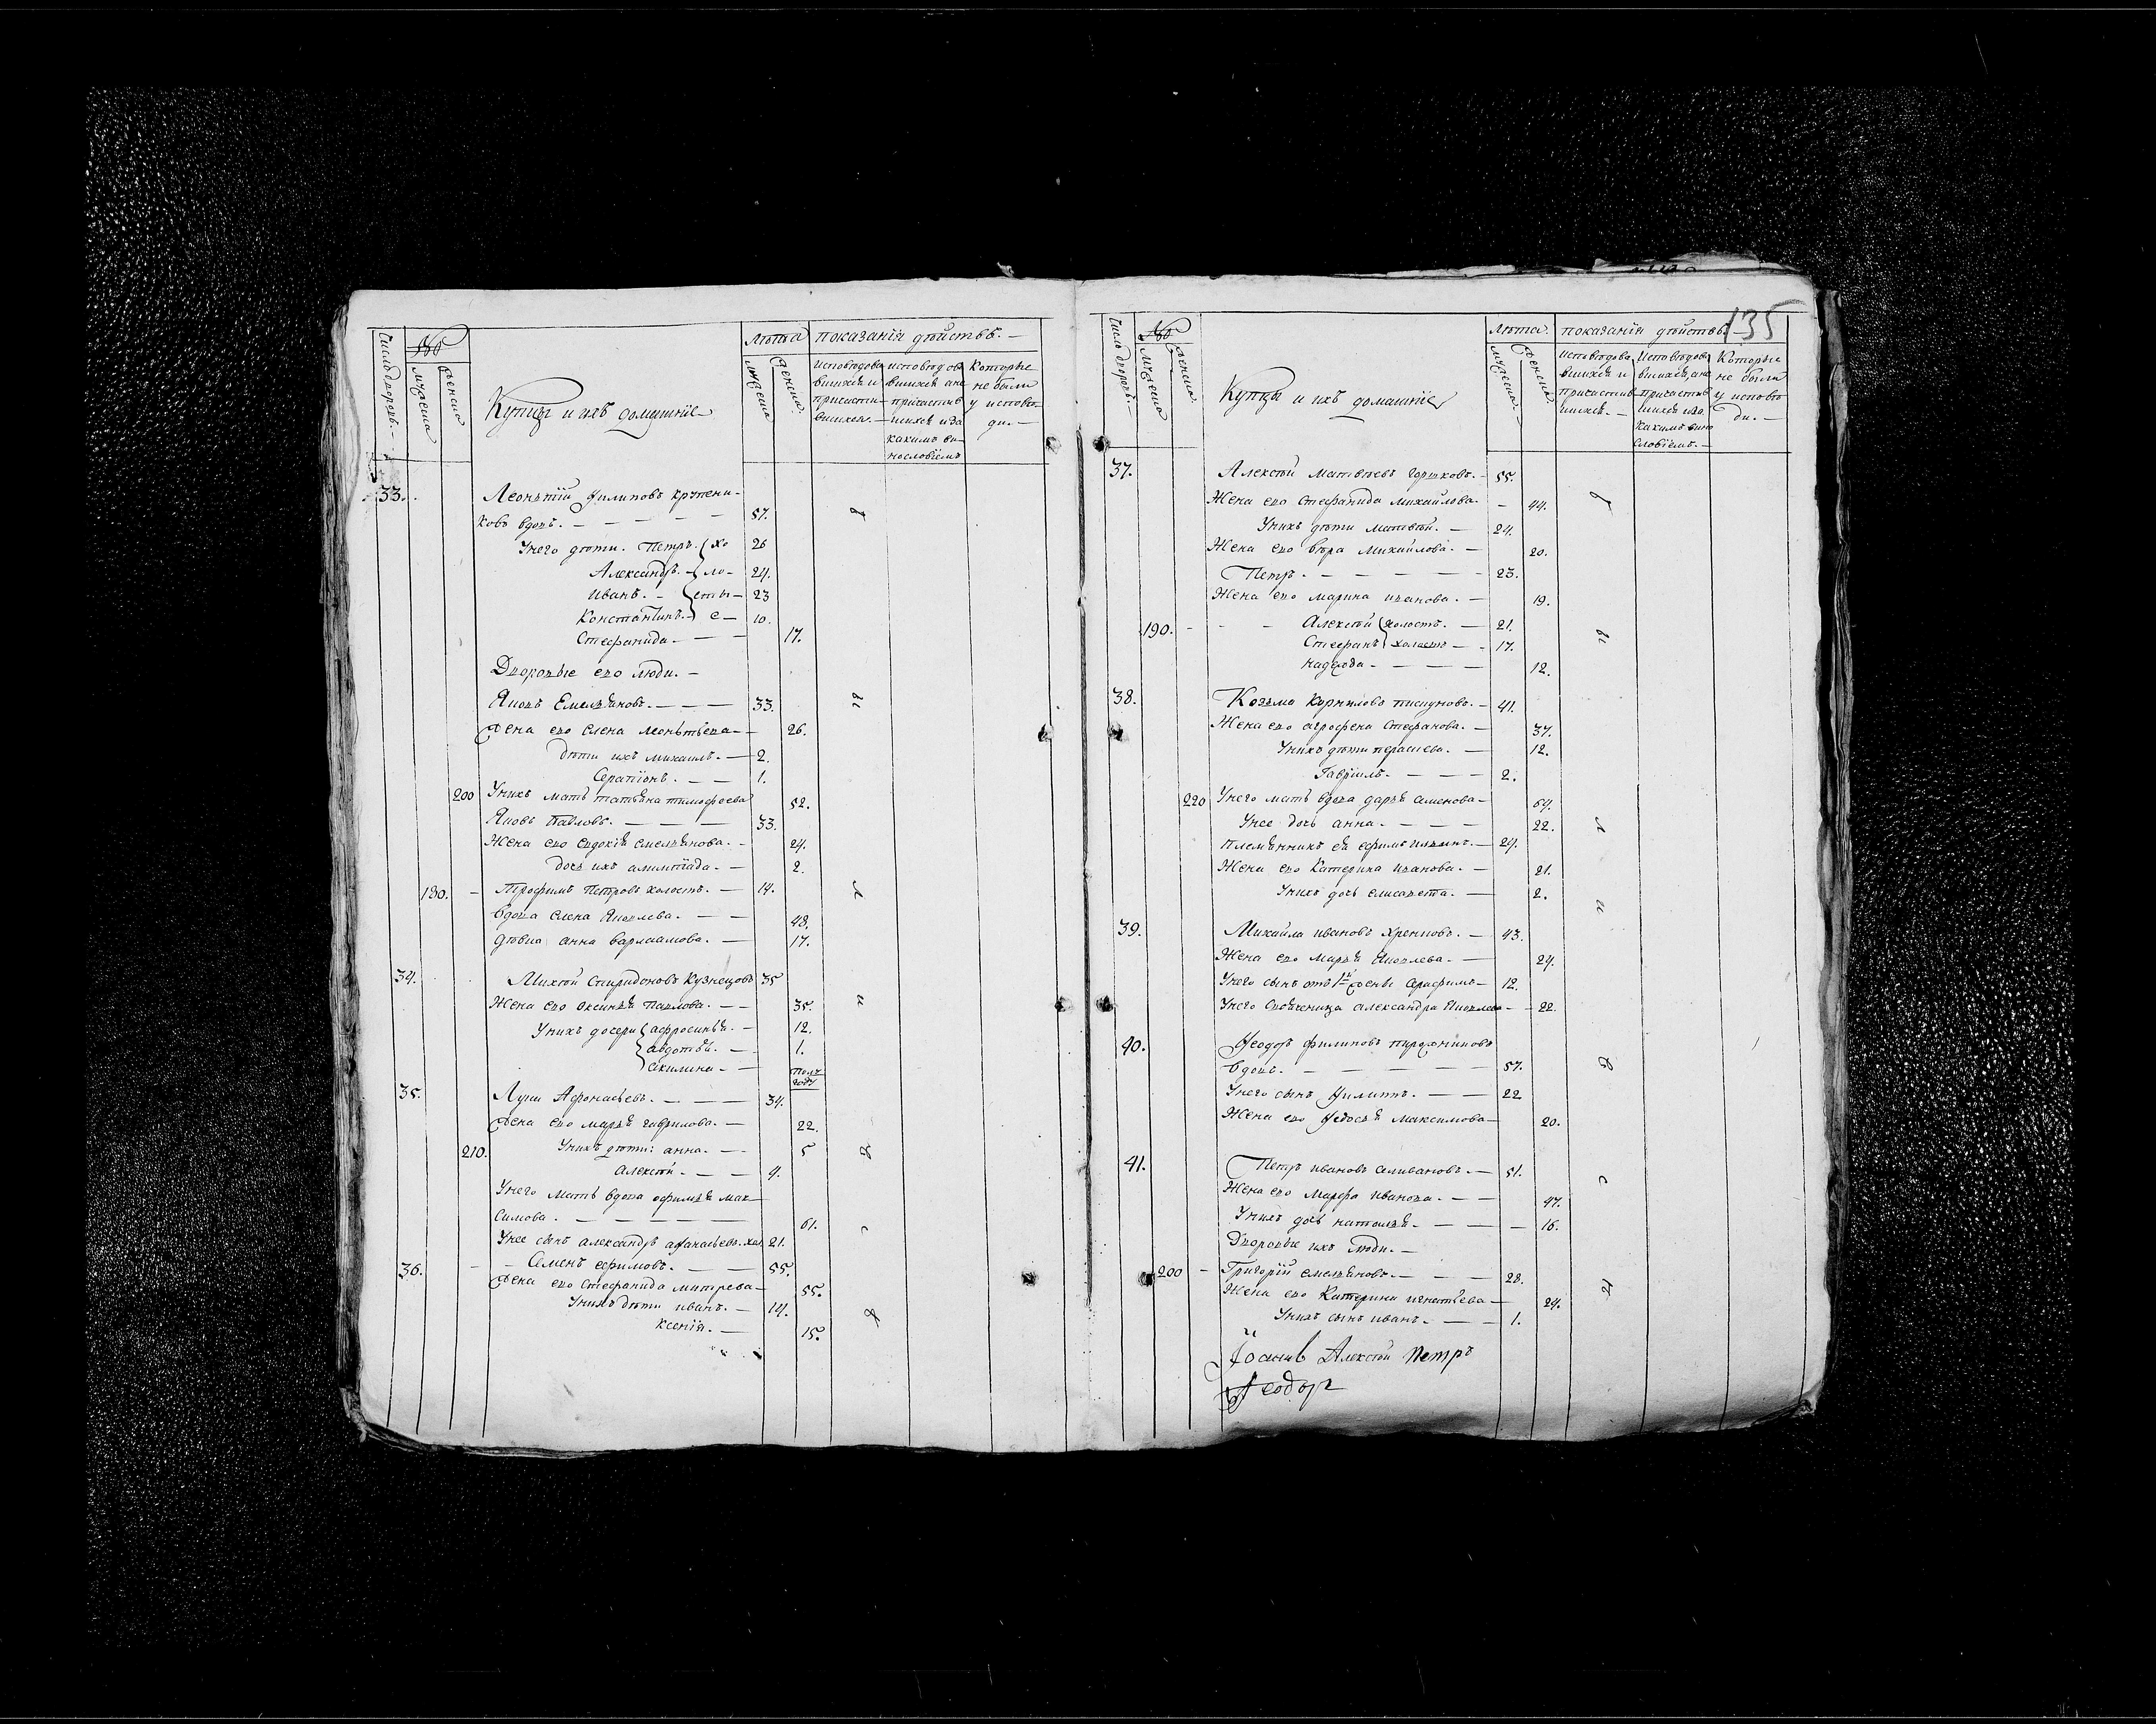 Число дворовъ.
№
мужеска
женска
Купцы и ихъ домашніе
Лѣта
мужеска
женска.
показанія дѣйствъ. —
исповѣдова
вшихся и
причасти
вшихся. —
исповѣдова
вшихся а не
причастив
шихся и за
какимъ ви-
нословіемъ
Которые
не были
у исповѣ
ди. —
33. Леонътій филиповъ
ковъ вдовъ. — — — — — 57.
Унего дѣти. Петръ. хо 26
Александръ. — ло — 24.
иванъ. — сты — 23
Константинъ. — е — 10.
Стефанида. — — — 17.
Дворовые его люди. —
Яковъ Емельяновъ. — — — 33.
жена его Елена леонътьева — 26.
дѣти ихъ михаилъ. — 2.
Серапіонъ. — — 1.
200 Унихъ мать татьяна тимофеева 52.
Яковъ Павловъ. — — — — 33.
Жена его Евдокія емельянова. — 24.
дочь ихъ алимпіада. — 2.
180. — Трофимъ Петровъ холостъ. — 14.
вдова елена Яковлева. — — 48.
дѣвка анна варлаамова. — 17.
34. Михей Спиридоновъ Кузнецовъ 35
Жена его Аксинья Павлова. — — 35.
Унихъ дочери афросинья. — 12.
авдотья. — — 1.
акилина — — полу
году
35. Лука Афонасьевъ. — — — 34.
жена его марья гаврилова. — 22.
210. Унихъ дѣти: анна. — — 5
алексей — — — 4.
Унего мать вдова ефимья мак
симова. — — — — — 61.
Унее сынъ александръ афанасьевъ. хол. 21.
36. — — Семенъ ефимовъ. — — — 55.
жена его Стефанида митрева — 55.
Унихъ дѣти иванъ. — 14.
ксенія. — 15.
135
Число дворовъ. —
№
мужеска
женска
Купцы и ихъ домашніе
Лѣта.
мужеска —
женска
показанія дѣйствъ.
исповѣдова
вшихся и
причастив
шихся. —
Исповѣдова
вшихся, а не
причастив
шихся и за
какимъ вино
словіемъ. —
Которые
не были
у исповѣ
ди. —
37. Алексѣй матвѣевъ горшковъ. — 55.
Жена его стефанида михайлова. — 44.
Унихъ дѣти матвѣй. — 24.
Жена его вѣра Михайлова. — 20.
Петръ. — — — — — 23.
Жена его марина иванова. — 19.
190. — — Алексѣй холостъ. — 21.
Стефанъ холостъ — — 17.
надежда — — — — 12.
38. Козьма Корниловъ — 41.
Жена его агрофена Стефанова. — 37.
Унихъ дѣти — 12.
Гавріилъ. — — — 2.
220 Унего мать вдова дарья семенова — 64.
Унее дочь анна. — — — 22.
племянникъ ея ефимъ ильинъ. — 24.
Жена его Катерина иванова. — 21.
Унихъ дочь елисавета. — 2.
39. Михайла ивановъ Хреновъ. — 43.
Жена его марья Яковлева. — 24.
Унего сынъ отъ 1й жены Серафимъ — 12.
Унего Своячница александра Яковлева — 22.
40. Феодоръ филиповъ
вдовъ. — — — — — — 57.
Унего сынъ Филиппъ. — — 22
Жена его Федосья максимова — 20.
41. Петръ ивановъ селивановъ. — 51.
Жена его марфа иванова. — — 47.
Унихъ дочь наталья. — — — 16.
Дворовые ихъ люди. —
200 — Григорій емельяновъ. — — — 28.
Жена его Катерина игнатьева — 24.
Унихъ сынъ иванъ. — — — 1.
Іоаннъ Алексѣй Петръ
Феодоръ